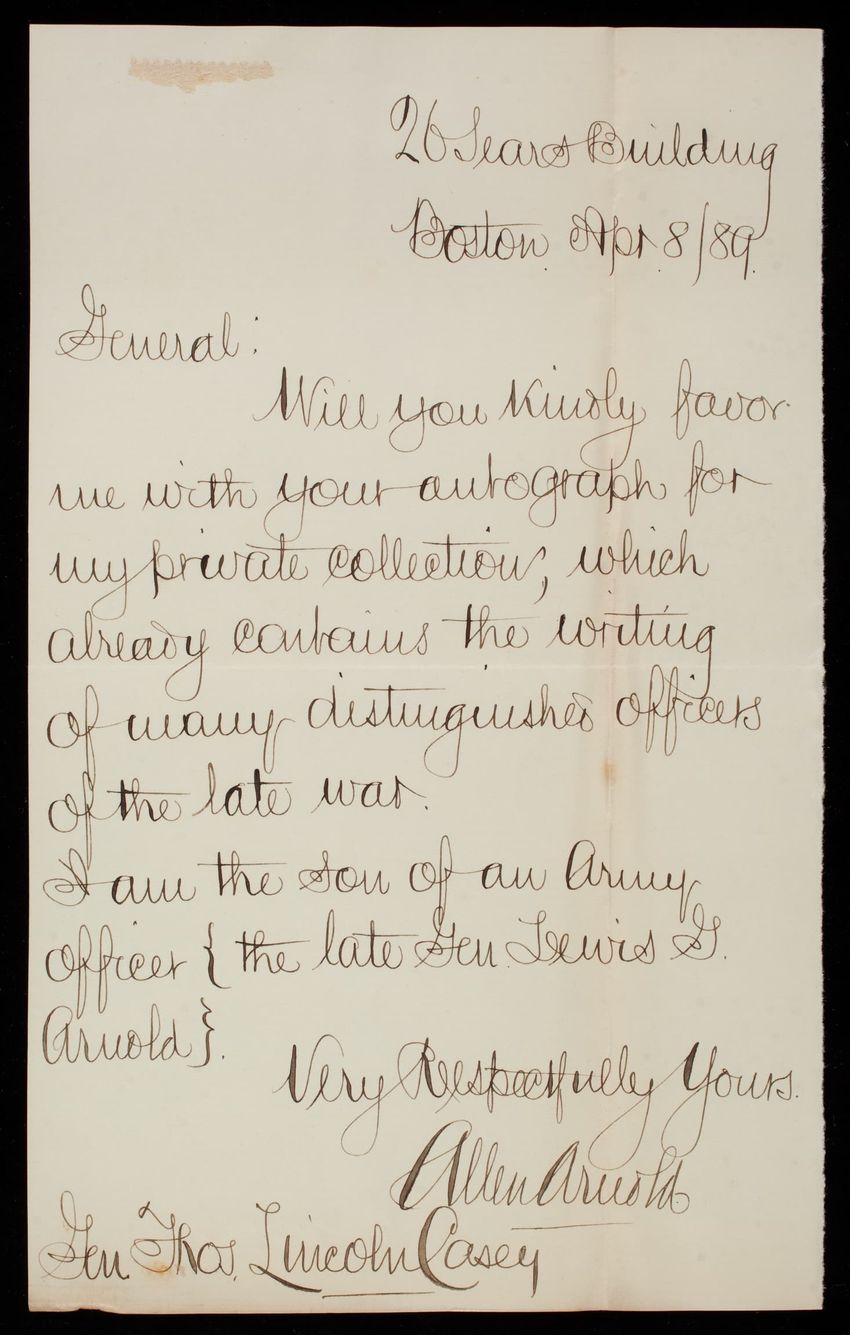 26 Sears Building
Boston. Apr. 8/89.
General:
Will you kindly favor
me with your autograph for
my private collection, which
already contains the writing
of many distinguished officers
of the late war.
I am the son of an Army
Officer { the late Gen. Lewis G.
Arnold }.
Very Respectfully Yours.
Allen Arnold
Gen. Thos. Lincoln Casey